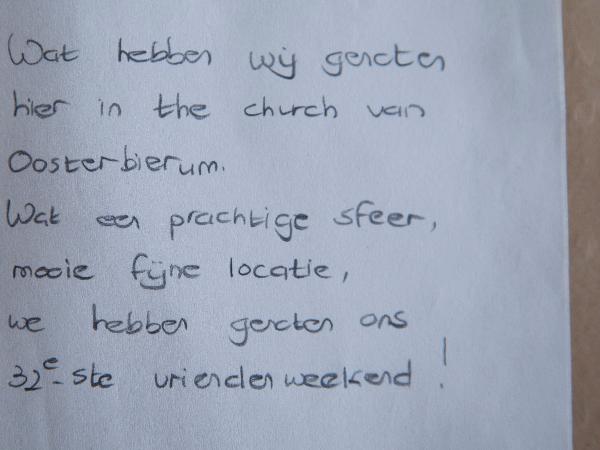 Wat hebben wij genoten
hier in the church van
Oosterbierum.
Wat een prachtige sfeer,
mooie fijne locatie,
we hebben genoten ons
32e-ste vriendenweekend!